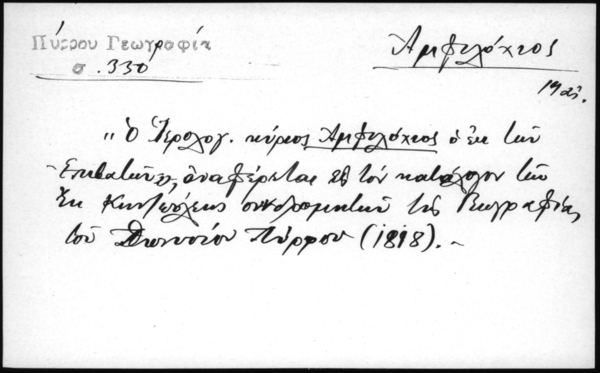 Πύρρου Γεωγραφία
σ. 330
Ἀμφιλόχιος
„Ὁ Ἱερολογ. κύριος Ἀμφιλόχιος ὁ ἐκ τῶν
Ἐπιβατῶν", ἀναφέρεται εἰς τὸν κατάλογον τῶν
ἐκ Κων/πόλεως συνδρομητῶν τῆς Γεωγραφίας
τοῦ Διονυσίου Πύρρου (1818). –